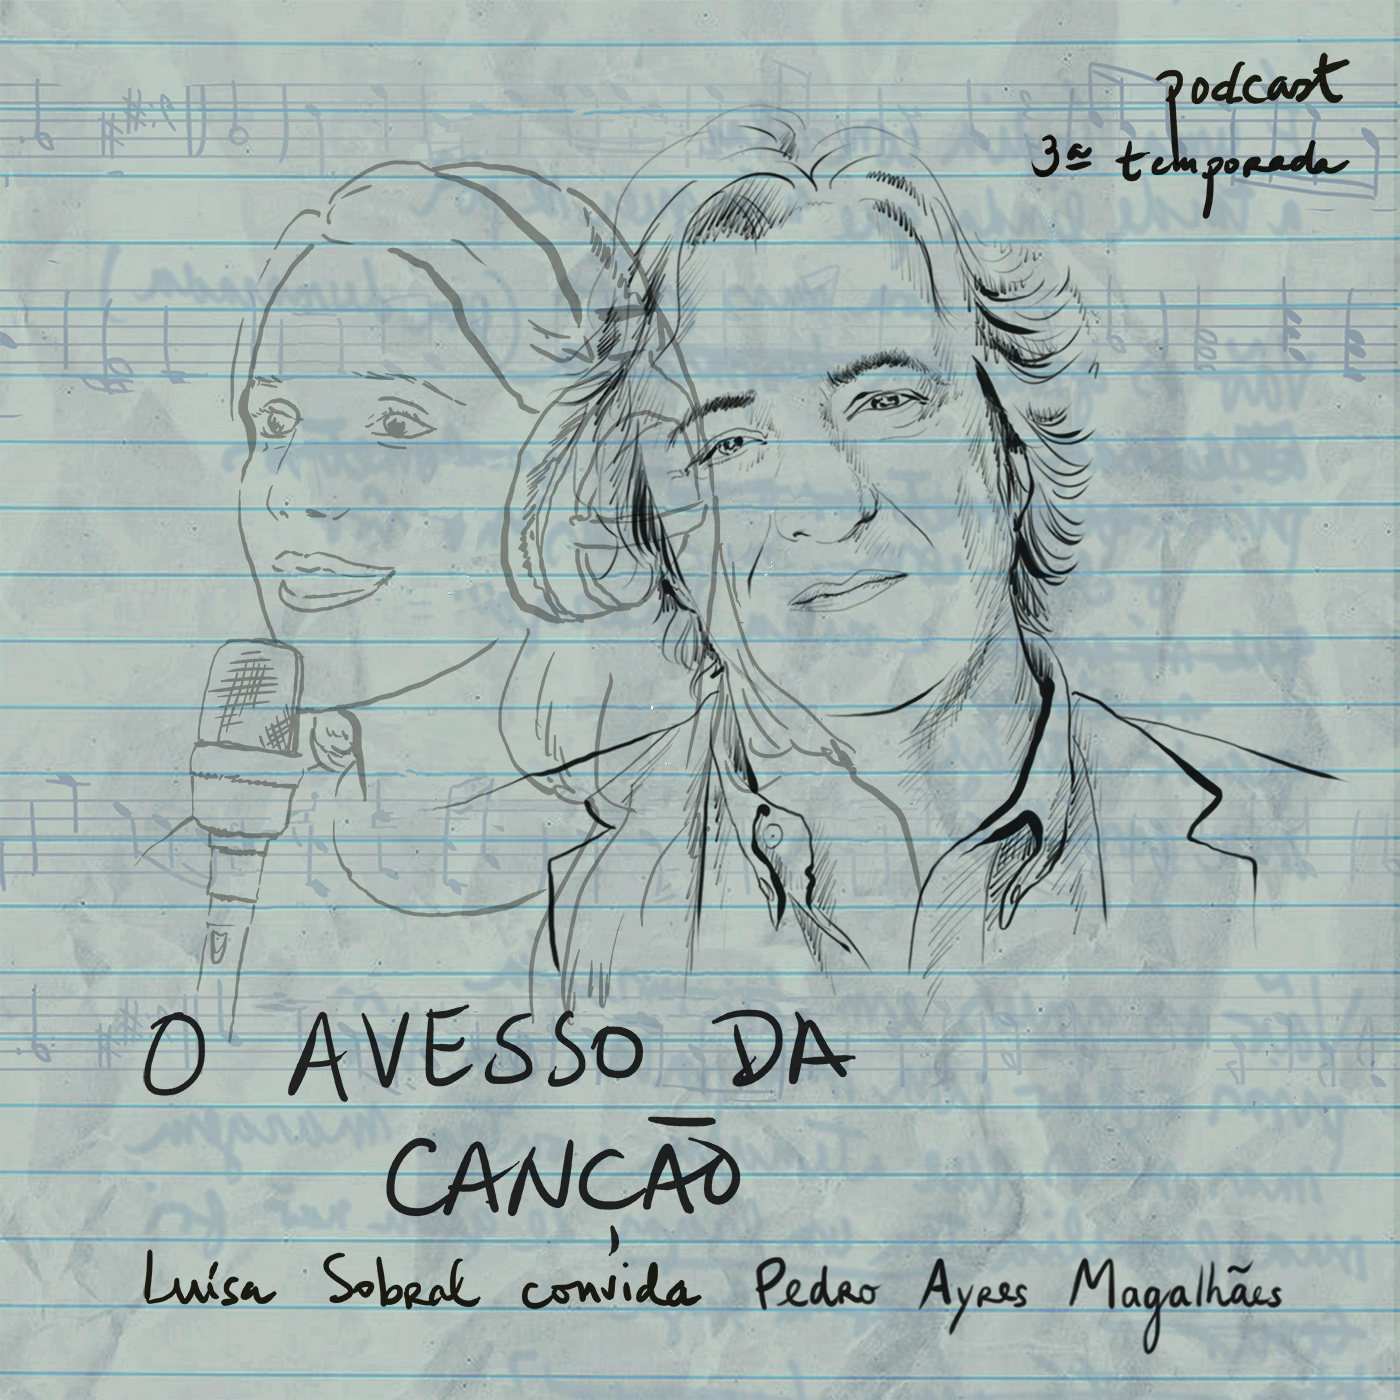 podcast
3ª temporada
O AVESSO DA
CANÇÃO
Luísa Sobral convida Pedro Ayres Magalhães